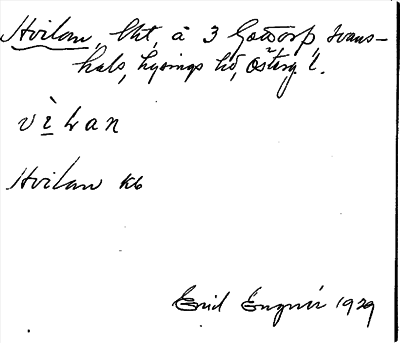 Hvilan, lht, å 3 Godtorp, Svans-
hals, Lysings hd, Österg. l.
vìlan
Hvilan kb
Emil Engnér 1929